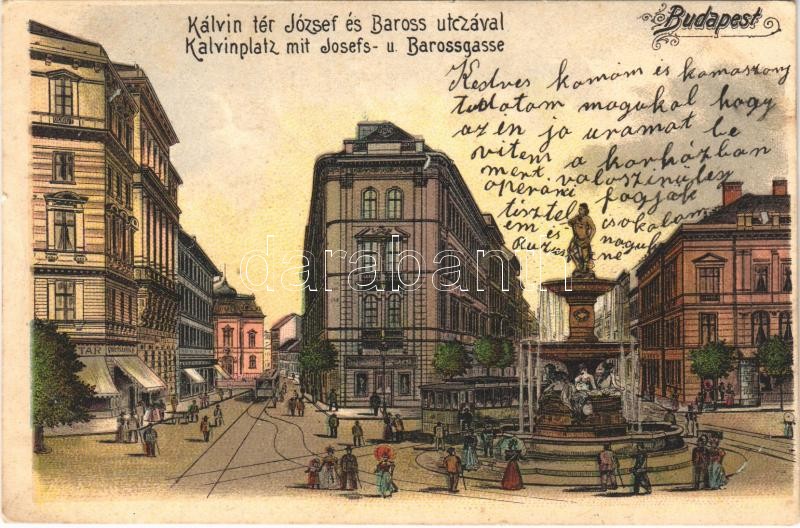 Kálvin tér József és Baross utczával
Kalvinplatz mit Josefs- u. Barossgasse
Budapest
Kedves komám és komaszony
tudatom magukal hogy
azén jo uramat be
vitem a korházban
mert valoszinuleg
operani fogják
tisztel csokolom
em és maguk
TÁR
darabanth